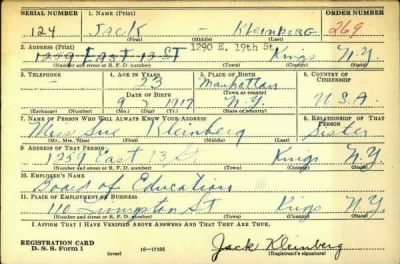 SERIAL NUMBER 1. NAME (Print) ORDER NUMBER
124 JACK - KLEINBERG 269
(First) (Middle) (Last)
2. ADDRESS (Print) 1290 E. 19th St
1259 EAST 13 ST Kings N.Y.
(Number and street or R. F. D. number) (Town) (County) (State)
3. TELEPHONE 4. AGE IN YEARS 5. PLACE OF BIRTH 6. COUNTRY OF CITIZENSHIP
- 23 Manhattan
DATE OF BIRTH (Town or county)
9 5 1917 N.Y. U.S.A
(Exchange) (Number) (Mo.) (Day) (Yr.) (State or country)
7. NAME OF PERSON WHO WILL ALWAYS KNOW YOUR ADDRESS 8. RELATIONSHIP OF THAT PERSON
Miss Sue Kleinberg Sister
(Mr., Mrs., Miss) (First) (Middle) (Last)
9. ADDRESS OF THAT PERSON
1259 East 13 St Kings N.Y.
(Number and street or R. F. D. number) (Town) (County) (State)
10. EMPLOYER'S NAME
Board of Education
11. PLACE OF EMPLOYMENT OR BUSINESS
110 Livingston St Kings N.Y.
(Number and street or R. F. D. number) (Town) (County) (State)
I AFFIRM THAT I HAVE VERIFIED ABOVE ANSWERS AND THAT THEY ARE TRUE.
REGISTRATION CARD
D. S. S. Form 1 (over) 16-17105 Jack Kleinberg
(Registrant's signature)